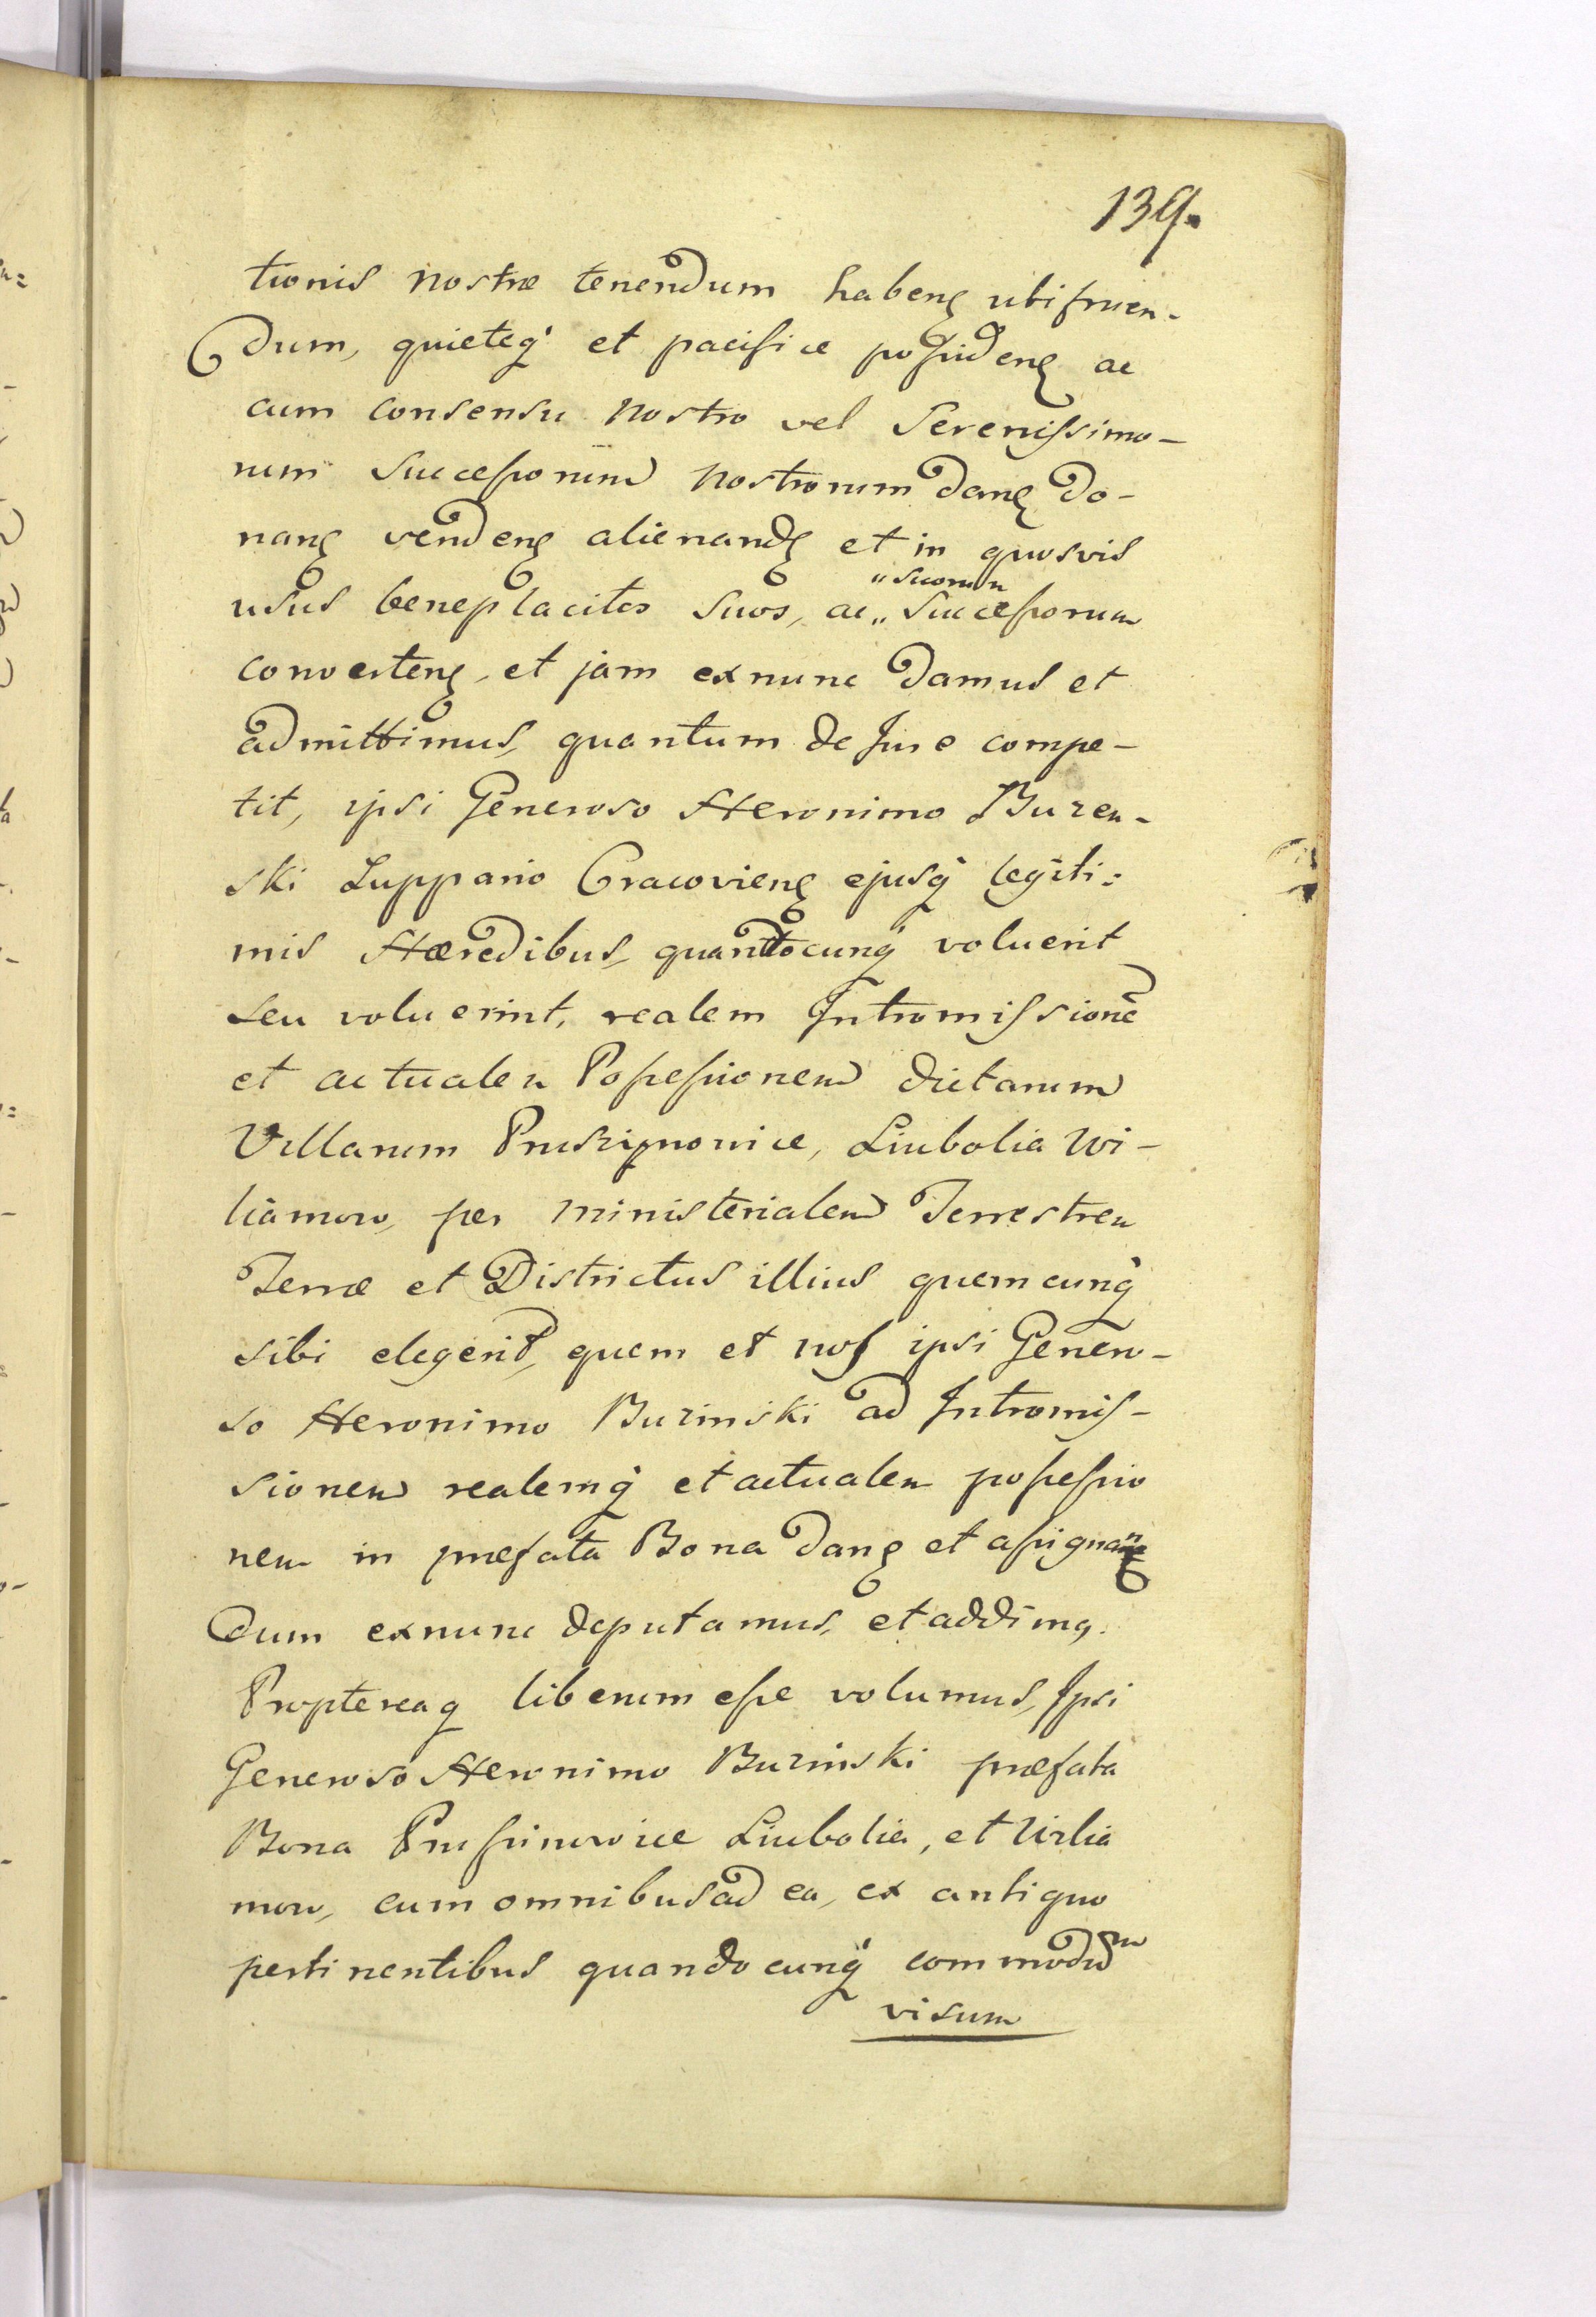 139.
tionis nostræ tenendum habenʒ utifruen-
dum, quieteq́ et pacifice possidenʒ ac
cum consensu nostro vel Serenissimo-
rum Successorum nostrorum danʒ do-
nanʒ vendenʒ alienandʒ et in quosvis
usus beneplacitos suos, ac „ suorum Successorum
convertenʒ, et jam exnunc damus et
admittimus, quantum de Jure compe-
tit, ipsi Generoso Heronimo Buzen-
ski Zuppario Cracovienʒ ejusq́ legiti:
mis Hæredibus, quandocunq́ voluerit
seu voluerint, realem Intromissionē
et actualem Possessionem dictarum
Villarum Pruszynowice, Liubolia Wi-
liamow, per ministerialem Terrestrem
Terræ et Districtus illius quemcunq́
sibi elegerit, quem et nos ipsi Genero-
so Heronimo Buzinski ad Intromis-
sionem realemq́ et actualem possessio
nem in præfata Bona danʒ et assignan
dum exnunc deputamus, et addimq.
Proptereaq liberum esse volumus, Ipsi
Generoso Heronimo Buzinski præfata
Bona Prussinowice Liubolia, et Wilia
mow, cum omnibus ad ea, ex antiquo
pertinentibus quandocunq́ commodum
visum